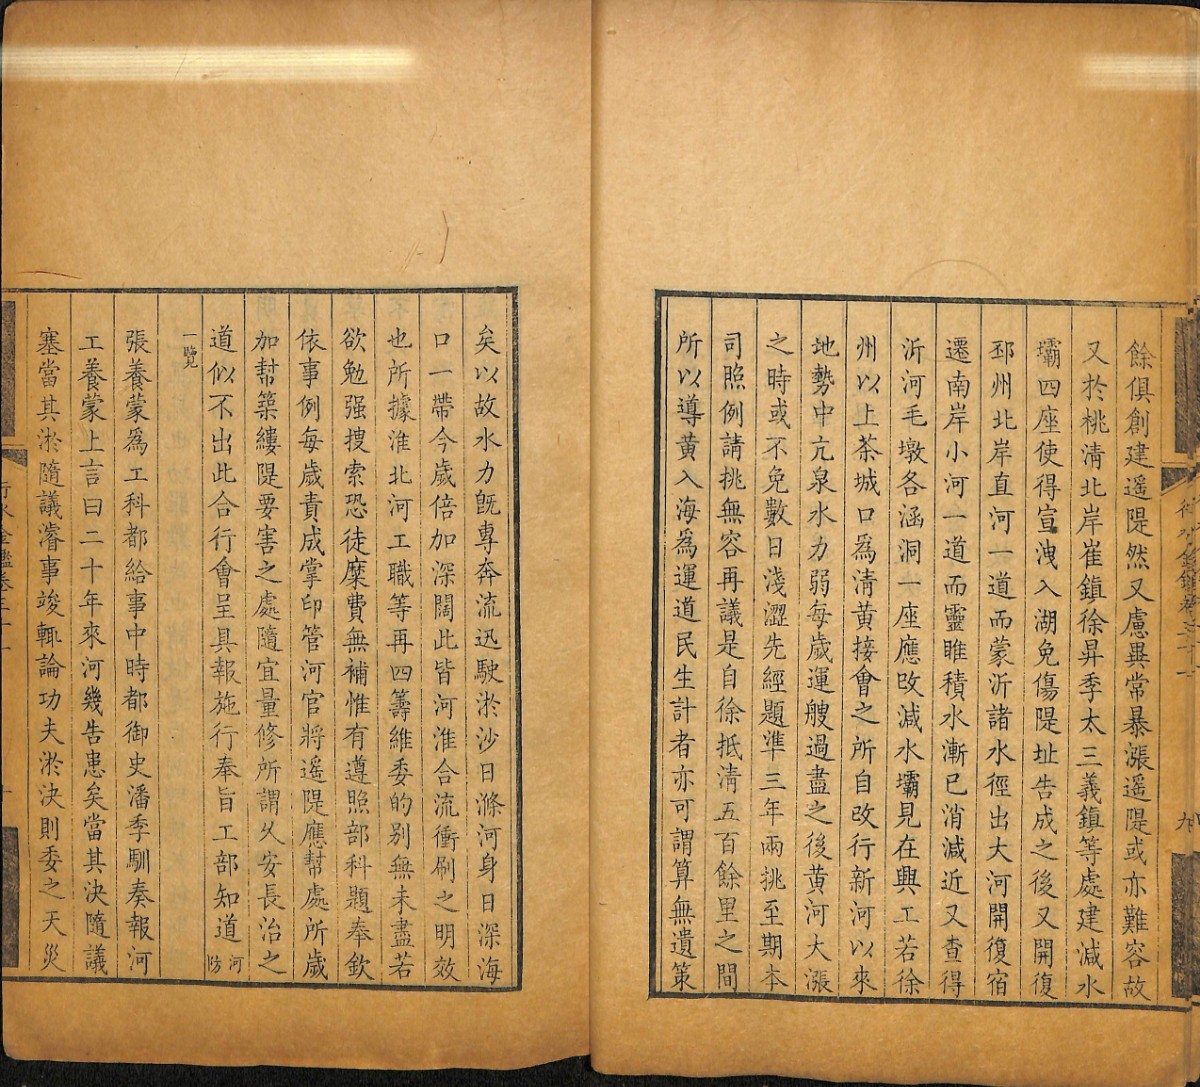 餘俱創建遥隄然又慮異常暴漲遥隄或亦難容故
又於桃清北岸崔鎮徐昇季太三義鎮等處建減水
壩四座使得宣洩入湖免傷隄址告成之後又開復
邳州北岸直河一道而蒙沂諸水徑出大河開復宿
遷南岸小河一道而靈睢積水漸已消減近又查得
沂河毛墩各涵洞一座應改減水壩見在興工若徐
州以上茶城口為清黄接會之所自改行新河以來
地勢中亢泉水力弱每歲運艘過盡之後黄河大漲
之時或不免數日淺澀先經題準三年兩挑至期本
司照例請挑無容再議是自徐抵清五百餘里之間
所以導黄入海為運道民生計者亦可謂算無遺策
矣以故水力既專奔流迅駛淤沙日滌河身日深海
口一帶今歲倍加深闊此皆河淮合流衝刷之明效
也所據淮北河工職等再四籌維委的别無未盡若
欲勉强搜索恐徒糜費無補惟有遵照部科題奉欽
依事例每歲責成掌印管河官將遥隄應幫處所歲
加幫築縷隄要害之處隨宜量修所謂久安長治之
道似不出此合行會呈具報施行奉旨工部知道河防
一覽
張養蒙爲工科都給事中時都御史潘季馴奏報河
工養蒙上言曰二十年來河幾告患矣當其決隨議
塞當其淤隨議濬事竣輒論功夫淤決則委之天災